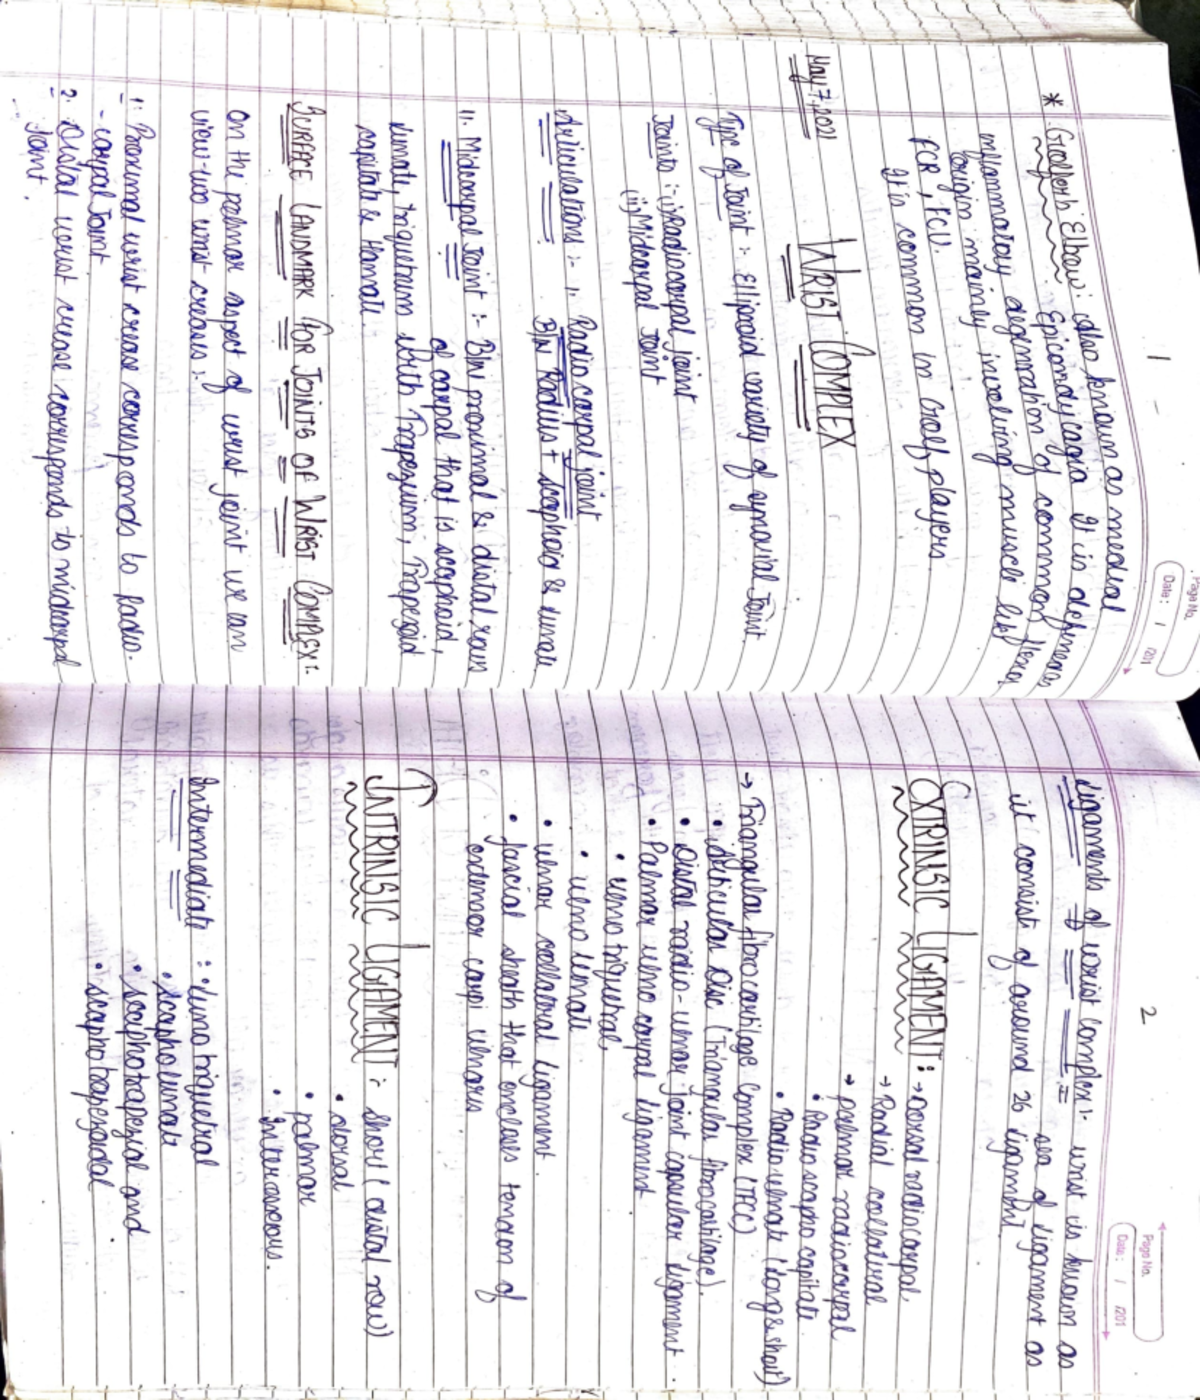 1
Page No.
Date: / /201
* Golfer's Elbow: also known as medial
Epicondylagia It is defined as
inflammatory degenration of common flexor
origin mainly involving muscle like
FCR, FCU.
It is common in Golf players.
May 7, 2021
WRIST COMPLEX
Type of Joint :- Ellipsoid variety of synovial Joint.
Joints :- (i) Radiocarpal joint
(ii) Midcarpal Joint
Articulations :- 1. Radio carpal joint
B/w Radius + scaphoid & lunate
11. Midcarpal Joint :- B/w proximal & distal rows
of carpal that is scaphoid,
lunate, triquetrum with Trapezium, Trapezoid
capitate & Hamate.
SURFACE LANDMARK FOR JOINTS OF WRIST COMPLEX :-
On the palmar aspect of wrist joint we can
view two wrist creases :-
1. Proximal wrist crease corresponds to Radio-
- carpal Joint
2. Distal wrist crease corresponds to midcarpal
Joint.
2
Page No.
Date: / /201
Ligaments of wrist complex :- wrist is known as
sea of ligament as
it consist of around 26 ligament.
EXTRINSIC LIGAMENT: → Dorsal radiocarpal,
→ Radial collatural
→ palmar radiocarpal
• Radio scapho capitate
• Radio lunate (Long & short)
→ Triangular fibrocartilage complex (TFCC)
• Articular Disc (Triangular fibrocartilage).
• Distal radio-ulnar joint capsular ligament.
• Palmar ulno carpal ligament
• ulno triquetral,
• ulno lunate
• ulnar collatral ligament.
• fascial sheath that encloses tendon of
extensor carpi ulnaris
INTRINSIC LIGAMENT :- short (distal row)
• dorsal
• palmar
• interosseous.
Intermediate : • luno triquetral
• scapho lunate
• scaphotrapezial and
• scapho trapezodal.